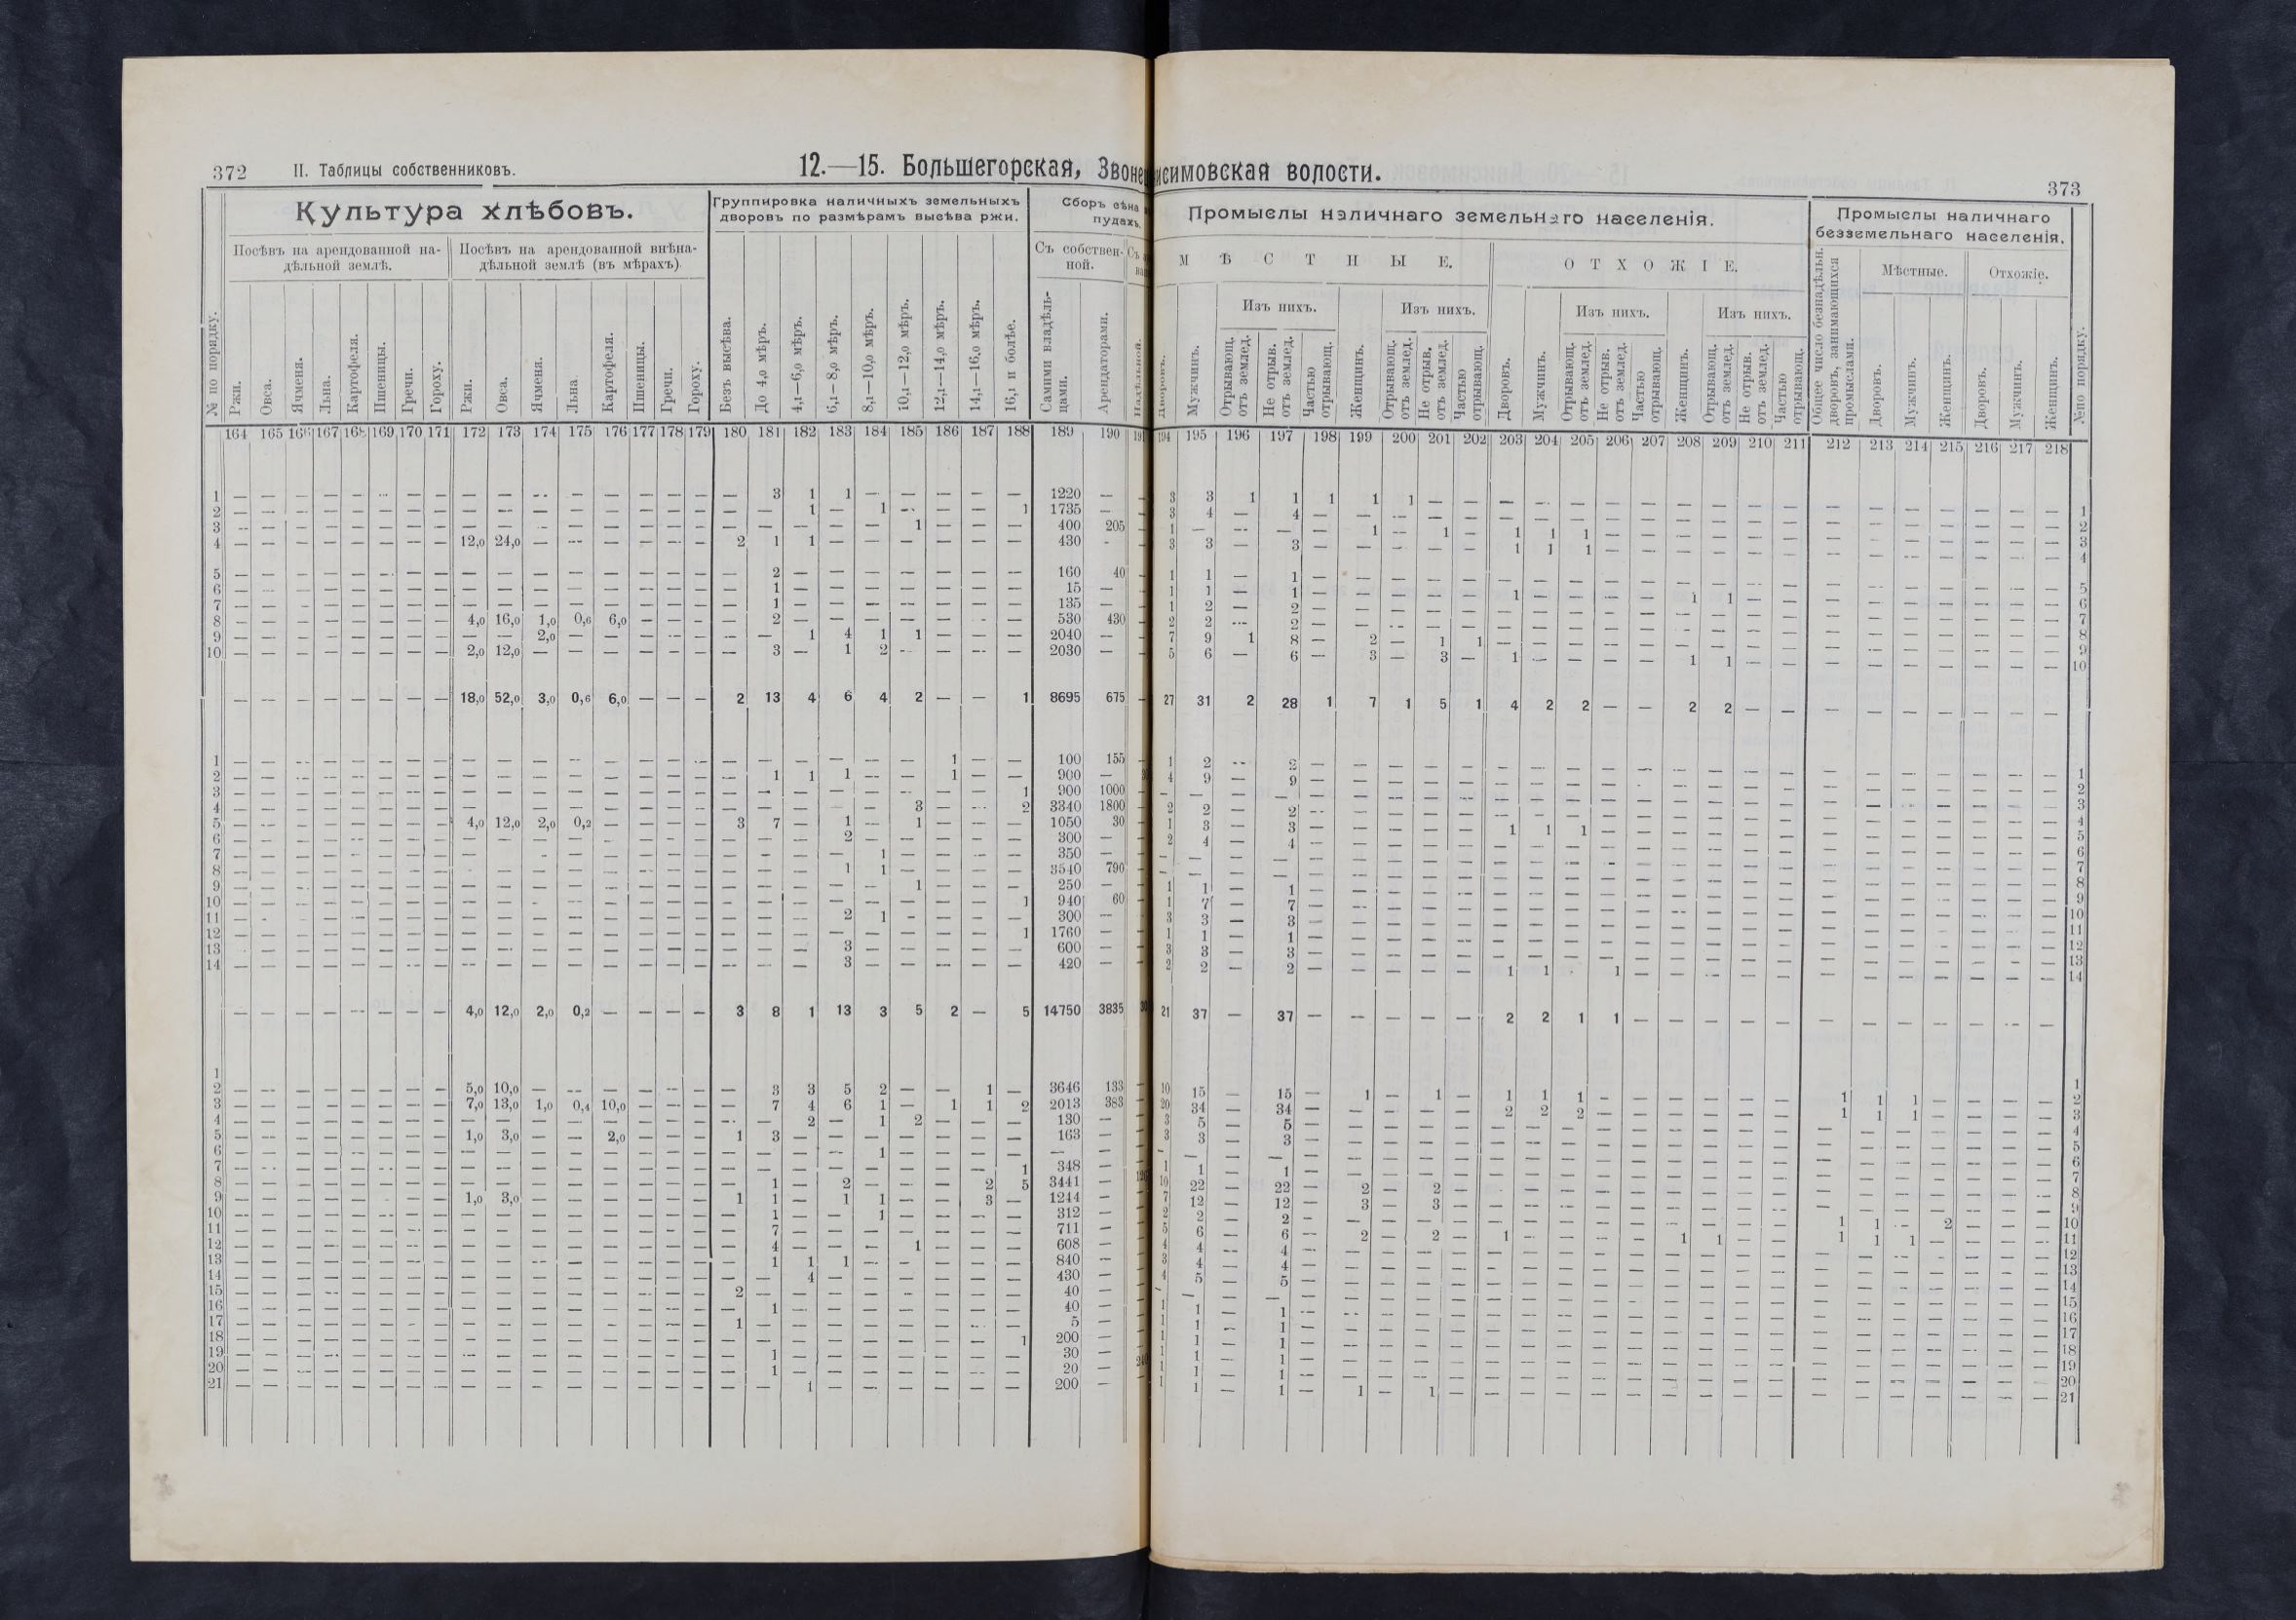 372 II. Таблицы собственниковъ. 12.—15. Большегорская, Звоне
Культура хлѣбовъ.
Группировка наличныхъ земельныхъ дворовъ по размѣрамъ высѣва ржи.
Сборъ сѣна
пудахъ.
Посѣвъ на арендованной надѣльной землѣ.
Посѣвъ на арендованной внѣнадѣльной землѣ (въ мѣрахъ).
Съ собственной.
№ по порядку.
Ржи. Овса. Ячменя. Льна. Картофеля. Пшеницы. Гречи. Гороху.
Ржи. Овса. Ячменя. Льна. Картофеля. Пшеницы. Гречи. Гороху.
Безъ высѣва. До 4,0 мѣръ. 4,1—6,0 мѣръ. 6,1—8,0 мѣръ. 8,1—10,0 мѣръ. 10,1—12,0 мѣръ. 12,1—14,0 мѣръ. 14,1—16,0 мѣръ. 16,1 и болѣе.
Самими владѣльцами. Арендаторами.
164 165 166 167 168 169 170 171 172 173 174 175 176 177 178 179 180 181 182 183 184 185 186 187 188 189 190
1 — — — — — — — — — — — — — — — — — 3 1 1 — — — — — 1220 —
2 — — — — — — — — — — — — — — — — — — 1 — 1 — — — 1 1735 —
3 — — — — — — — — — — — — — — — — — — — — — 1 — — — 400 205
4 — — — — — — — — 12,0 24,0 — — — — — — 2 1 1 — — — — — — 430 -
5 — — — — — — — — — — — — — — — — — 2 — — — — — — — 160 40
6 — — — — — — — — — — — — — — — — — 1 — — — — — — — 15 —
7 — — — — — — — — — — — — — — — — — 1 — — — — — — — 135 —
8 — — — — — — — — 4,0 16,0 1,0 0,6 6,0 — — — — 2 — — — — — — — 530 430
9 — — — — — — — — — — 2,0 — — — — — — — 1 4 1 1 — — — 2040 —
10 — — — — — — — — 2,0 12,0 — — — — — — — 3 — 1 2 — — — — 2030 —
— — — — — — — — 18,0 52,0 3,0 0,6 6,0 — — — 2 13 4 6 4 2 — — 1 8695 675
1 — — — — — — — — — — — — — — — — — — — — — — 1 — — 100 155
2 — — — — — — — — — — — — — — — — — 1 1 1 — — 1 — — 900 —
3 — — — — — — — — — — — — — — — — — — — — — — — — 1 900 1000
4 — — — — — — — — — — — — — — — — — — — — — 3 — — 2 3340 1800
5 — — — — — — — — 4,0 12,0 2,0 0,2 — — — — 3 7 — 1 — 1 — — — 1050 30
6 — — — — — — — — — — — — — — — — — — — 2 — — — — — 300 —
7 — — — — — — — — — — — — — — — — — — — — 1 — — — — 350 —
8 — — — — — — — — — — — — — — — — — — — 1 1 — — — — 3540 790
9 — — — — — — — — — — — — — — — — — — — — — 1 — — — 250 —
10 — — — — — — — — — — — — — — — — — — — — — — — — 1 940 60
11 — — — — — — — — — — — — — — — — — — — 2 1 — — — — 300 —
12 — — — — — — — — — — — — — — — — — — — — — — — — 1 1760 —
13 — — — — — — — — — — — — — — — — — — — 3 — — — — — 600 —
14 — — — — — — — — — — — — — — — — — — — 3 — — — — — 420 —
— — — — — — — — 4,0 12,0 2,0 0,2 — — — — 3 8 1 13 3 5 2 — 5 14750 3835
1
2 — — — — — — — — 5,0 10,0 — — — — — — — 3 3 5 2 — — 1 — 3646 133
3 — — — — — — — — 7,0 13,0 1,0 0,4 10,0 — — — — 7 4 6 1 — 1 1 2 2013 383
4 — — — — — — — — — — — — — — — — — — 2 — 1 2 — — — 130 —
5 — — — — — — — — 1,0 3,0 — — 2,0 — — — 1 3 — — — — — — — 163 —
6 — — — — — — — — — — — — — — — — — — — — 1 — — — — — —
7 — — — — — — — — — — — — — — — — — — — — — — — — 1 348 —
8 — — — — — — — — — — — — — — — — — 1 — 2 — — — 2 5 3441 —
9 — — — — — — — — 1,0 3,0 — — — — — — 1 1 — 1 1 — — 3 — 1244 —
10 — — — — — — — — — — — — — — — — — 1 — — 1 — — — — 312 —
11 — — — — — — — — — — — — — — — — — 7 — — — — — — — 711 —
12 — — — — — — — — — — — — — — — — — 4 — — — 1 — — — 608 —
13 — — — — — — — — — — — — — — — — — 1 1 1 — — — — — 840 —
14 — — — — — — — — — — — — — — — — — — 4 — — — — — — 430 —
15 — — — — — — — — — — — — — — — — 2 — — — — — — — — 40 —
16 — — — — — — — — — — — — — — — — — 1 — — — — — — — 40 —
17 — — — — — — — — — — — — — — — — 1 — — — — — — — — 5 —
18 — — — — — — — — — — — — — — — — — — — — — — — — 1 200 —
19 — — — — — — — — — — — — — — — — — 1 — — — — — — — 30 —
20 — — — — — — — — — — — — — — — — — 1 — — — — — — — 20 —
21 — — — — — — — — — — — — — — — — — — 1 — — — — — — 200 —
исимовская волости. 373
Промыслы наличнаго земельнаго населенія.
Промыслы наличнаго безземельнаго населенія.
МѢСТНЫЕ. ОТХОЖІЕ.
Мѣстные. Отхожіе.
Изъ нихъ. Изъ нихъ. Изъ нихъ. Изъ нихъ.
Дворовъ. Мужчинъ. Отрывающ. отъ землед. Не отрыв. отъ землед. Частью отрывающ. Женщинъ. Отрывающ. отъ землед. Не отрыв. отъ землед. Частью отрывающ.
Дворовъ. Мужчинъ. Отрывающ. отъ землед. Не отрыв. отъ землед. Частью отрывающ. Женщинъ. Отрывающ. отъ землед. Не отрыв. отъ землед. Частью отрывающ.
Общее число безнадѣльн. дворовъ, занимающихся промыслами. Дворовъ. Мужчинъ. Женщинъ. Дворовъ. Мужчинъ. Женщинъ. № по порядку.
194 195 196 197 198 199 200 201 202 203 204 205 206 207 208 209 210 211 212 213 214 215 216 217 218
3 3 1 1 1 1 1 — — — — — — — — — — — — — — — — — — 1
3 4 — 4 — — — — — — — — — — — — — — — — — — — — — 2
1 — — — — 1 — 1 — 1 1 1 — — — — — — — — — — — — — 3
3 3 — 3 — — — — — 1 1 1 — — — — — — — — — — — — — 4
1 1 — 1 — — — — — — — — — — — — — — — — — — — — — 5
1 1 — 1 — — — — — 1 — — — — 1 1 — — — — — — — — — 6
1 2 — 2 — — — — — — — — — — — — — — — — — — — — — 7
2 2 — 2 — — — — — — — — — — — — — — — — — — — — — 8
7 9 1 8 — 2 — 1 1 — — — — — — — — — — — — — — — — 9
5 6 — 6 — 3 — 3 — 1 — — — — 1 1 — — — — — — — — — 10
27 31 2 28 1 7 1 5 1 4 2 2 — — 2 2 — — — — — — — — —
1 2 — 2 — — — — — — — — — — — — — — — — — — — — — 1
4 9 — 9 — — — — — — — — — — — — — — — — — — — — — 2
— — — — — — — — — — — — — — — — — — — — — — — — — 3
2 2 — 2 — — — — — — — — — — — — — — — — — — — — — 4
1 3 — 3 — — — — — 1 1 1 — — — — — — — — — — — — — 5
2 4 — 4 — — — — — — — — — — — — — — — — — — — — — 6
— — — — — — — — — — — — — — — — — — — — — — — — — 7
— — — — — — — — — — — — — — — — — — — — — — — — — 8
1 1 — 1 — — — — — — — — — — — — — — — — — — — — — 9
1 7 — 7 — — — — — — — — — — — — — — — — — — — — — 10
3 3 — 3 — — — — — — — — — — — — — — — — — — — — — 11
1 1 — 1 — — — — — — — — — — — — — — — — — — — — — 12
3 3 — 3 — — — — — — — — — — — — — — — — — — — — — 13
2 2 — 2 — — — — — 1 1 · 1 — — — — — — — — — — — — 14
21 37 — 37 — — — — — 2 2 1 1 — — — — — — — — — — — —
1
10 15 — 15 — 1 — 1 — 1 1 1 — — — — — — 1 1 1 — — — — 2
20 34 — 34 — — — — — 2 2 2 — — — — — — 1 1 1 — — — — 3
3 5 — 5 — — — — — — — — — — — — — — — — — — — — — 4
3 3 — 3 — — — — — — — — — — — — — — — — — — — — — 5
— — — — — — — — — — — — — — — — — — — — — — — — — 6
1 1 — 1 — — — — — — — — — — — — — — — — — — — — — 7
10 22 — 22 — 2 — 2 — — — — — — — — — — — — — — — — — 8
7 12 — 12 — 3 — 3 — — — — — — — — — — — — — — — — — 9
2 2 — 2 — — — — — — — — — — — — — — 1 1 — 2 — — — 10
5 6 — 6 — 2 — 2 — 1 — — — — 1 1 — — 1 1 1 — — — — 11
4 4 — 4 — — — — — — — — — — — — — — — — — — — — — 12
3 4 — 4 — — — — — — — — — — — — — — — — — — — — — 13
4 5 — 5 — — — — — — — — — — — — — — — — — — — — — 14
— — — — — — — — — — — — — — — — — — — — — — — — — 15
1 1 — 1 — — — — — — — — — — — — — — — — — — — — — 16
1 1 — 1 — — — — — — — — — — — — — — — — — — — — — 17
1 1 — 1 — — — — — — — — — — — — — — — — — — — — — 18
1 1 — 1 — — — — — — — — — — — — — — — — — — — — — 19
1 1 — 1 — — — — — — — — — — — — — — — — — — — — — 20
1 1 — 1 — 1 — 1 — — — — — — — — — — — — — — — — — 21